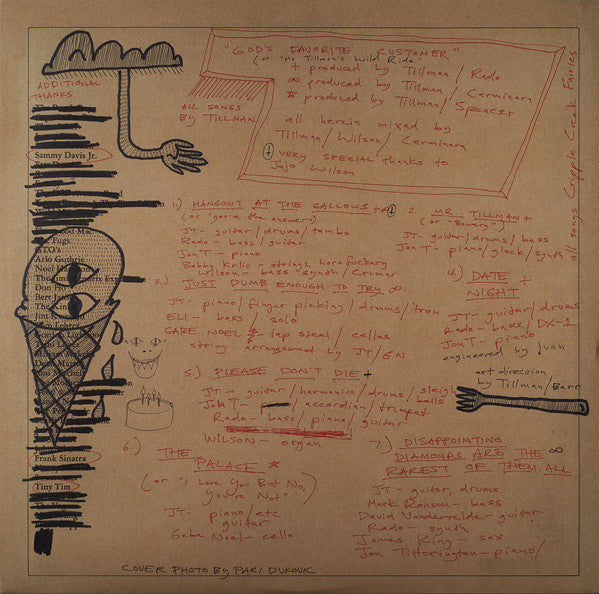 "GOD'S FAVORITE CUSTOMER"
(or "Mr. Tillman's Wild Ride"
+ produced by Tillman/Rado
∞ produced by Tillman/Cerminara
* produced by Tillman/Spencer
all herein mixed by
Tillman/Wilson/Cerminara
VERY SPECIAL thanks to
Jojo Wilson
ADDITIONAL
THANKS:
ALL SONGS
BY TILLMAN
all songs Cripple Creek Fairies
Sammy Davis Jr.
Mac
Fugs
GTO's
Arlo Guthrie
Noel
The Jimi Hendrix Exper
Don
Bert
King
Jim
Frank Sinatra
Tiny Tim
1.) HANGOUT AT THE GALLOWS +
(or "you're the answer")
JT- guitar/drums/tambo
Rado- bass/guitar
Jon T- piano
Bobby Krlic- strings, horn fuckery
Wilson- bass synth/Crumar
2. MR. TILLMAN +
(or "Bowery")
JT- guitar/drums/bass
Jon T- piano/glock/synth
3.) JUST DUMB ENOUGH TO TRY ∞
JT- piano/finger picking/drums/tron
ELI- bass/solo
GABE NOEL- lap steel/cellos
string arrangement by JT/GN
4.) DATE +
NIGHT
JT- guitar/drums
Rado- bass/DX-1
Jon T- piano
engineered by Juan
art direction
by Tillman/Barr
5.) PLEASE DON'T DIE +
JT- guitar/harmonica/drums/sleigh
bells
Jon T- accordian/trumpet
Rado- bass/piano/guitar
WILSON- organ
6.) THE
PALACE *
(or "I Love You But No,
You're Not")
JT- piano/etc
guitar
Gabe Noel- cello
7.) DISAPPOINTING
DIAMONDS ARE THE ∞
RAREST OF THEM ALL
JT- guitar, drums
Mark Ronson- bass
David Vandervelde- guitar
Rado- synth
James King- sax
Jon Titterington- piano/
COVER PHOTO BY PARI DUKOVIC